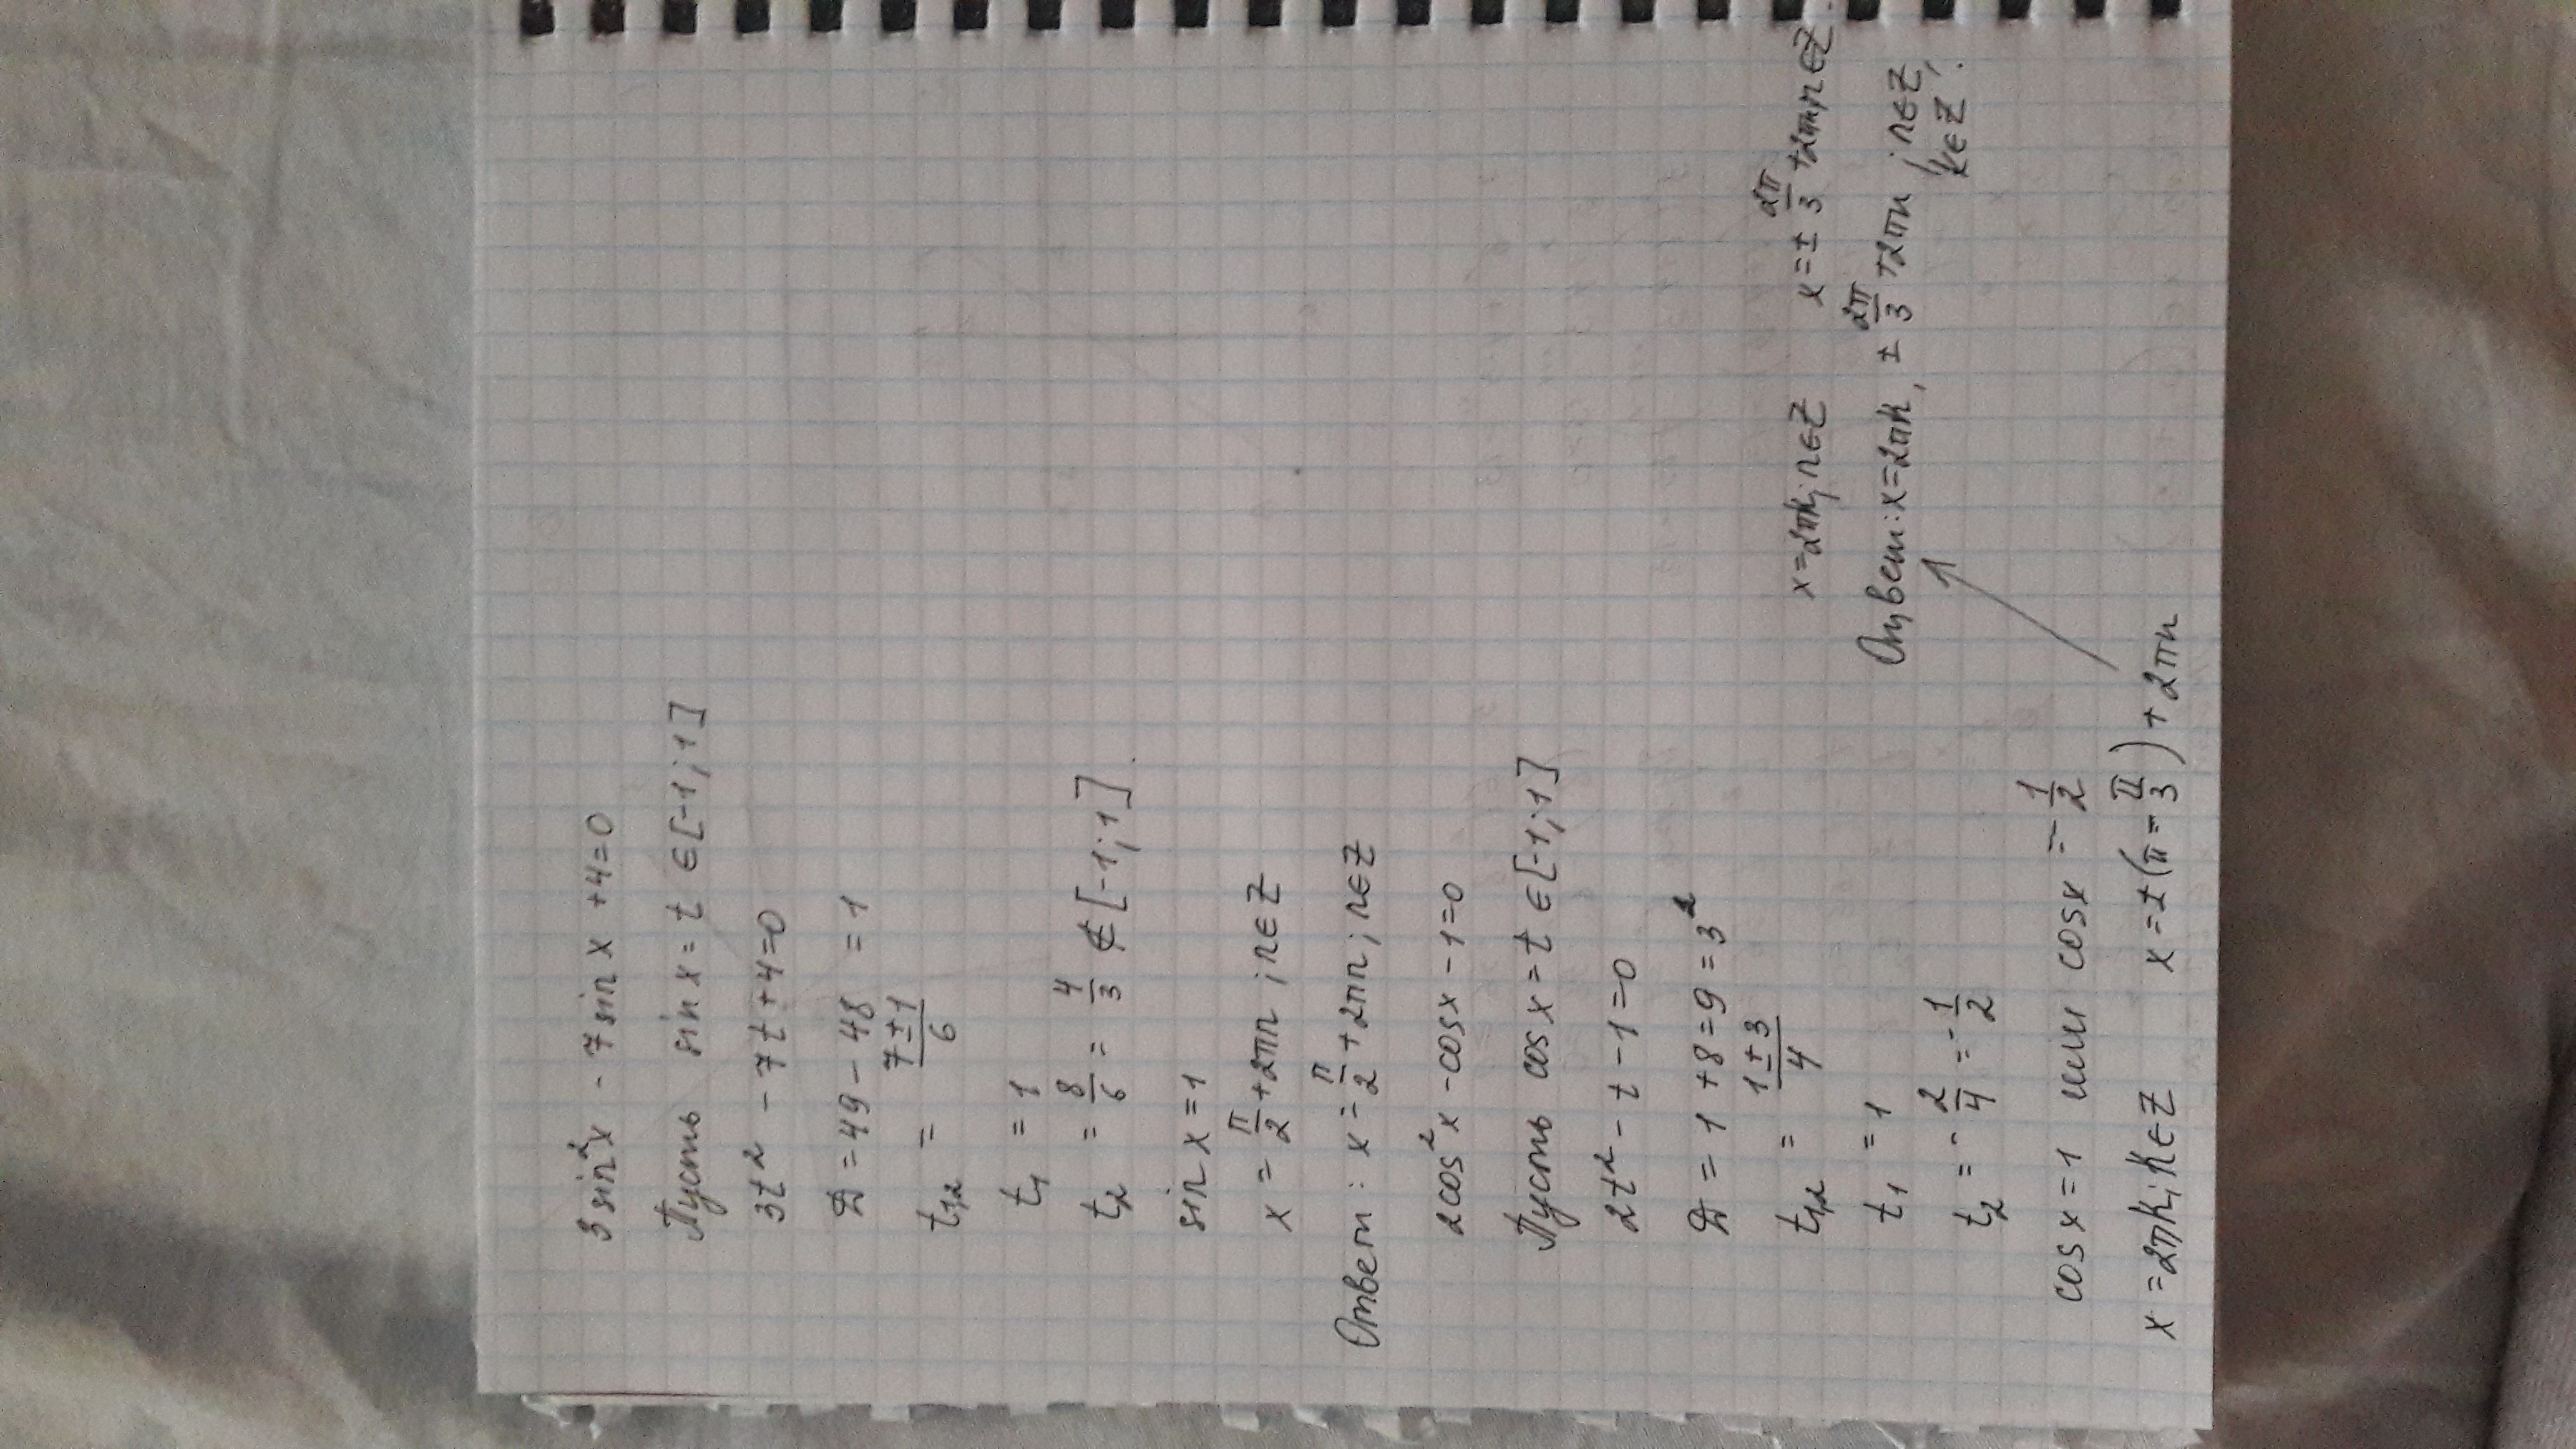 3 sin²x - 7 sin x + 4 = 0
Пусть sin x = t ∈ [-1; 1]
3t² - 7t + 4 = 0
D = 49 - 48 = 1
t₁,₂ = (7 ± 1)/6
t₁ = 1
t₂ = 8/6 = 4/3 ∉ [-1; 1].
sin x = 1
x = π/2 + 2πn ; n ∈ Z
Ответ: x = π/2 + 2πn ; n ∈ Z
2cos²x - cosx - 1 = 0
Пусть cos x = t ∈ [-1; 1]
2t² - t - 1 = 0
D = 1 + 8 = 9 = 3²
t₁,₂ = (1 ± 3)/4
t₁ = 1
t₂ = - 2/4 = - 1/2
cos x = 1 или cosx = - 1/2
x = 2πk; k ∈ Z x = ± (π - π/3) + 2πn
x = 2πk; n ∈ Z x = ± 2π/3 + 2πn, n ∈ Z.
Ответ: x = 2πk, ± 2π/3 + 2πn ; n ∈ Z,
k ∈ Z.